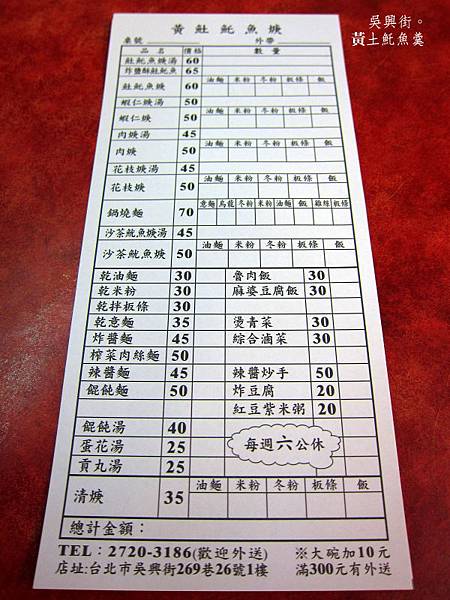 吳興街。
黃土魠魚羹
黃𩵚魠魚焿
桌號 外帶
品名 價格 數量
𩵚魠魚焿湯 60
炸鹽酥𩵚魠魚 65
油麵 米粉 冬粉 板條 飯
𩵚魠魚焿 60
蝦仁焿湯 50
油麵 米粉 冬粉 板條 飯
蝦仁焿 50
肉焿湯 45
油麵 米粉 冬粉 板條 飯
肉焿 50
花枝焿湯 45
油麵 米粉 冬粉 板條 飯
花枝焿 50
意麵 烏龍 冬粉 米粉 油麵 飯 雞絲 板條
鍋燒麵 70
沙茶魷魚焿湯 45
油麵 米粉 冬粉 板條 飯
沙茶魷魚焿 50
乾油麵 30 魯肉飯 30
乾米粉 30 麻婆豆腐飯 30
乾拌板條 30
乾意麵 35 燙青菜 30
炸醬麵 45 綜合滷菜 30
榨菜肉絲麵 50
辣醬麵 45 辣醬炒手 50
餛飩麵 50 炸豆腐 20
紅豆紫米粥 20
餛飩湯 40
蛋花湯 25
貢丸湯 25
每週六公休
油麵 米粉 冬粉 板條 飯
清焿 35
總計金額：
TEL：2720-3186(歡迎外送) ※大碗加10元
店址:台北市吳興街269巷26號1樓 滿300元有外送